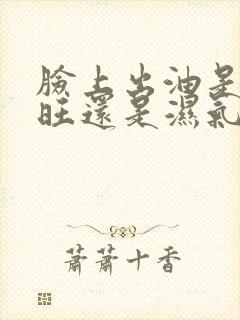 臉上出油是
旺還是濕氣
蕭蕭十香